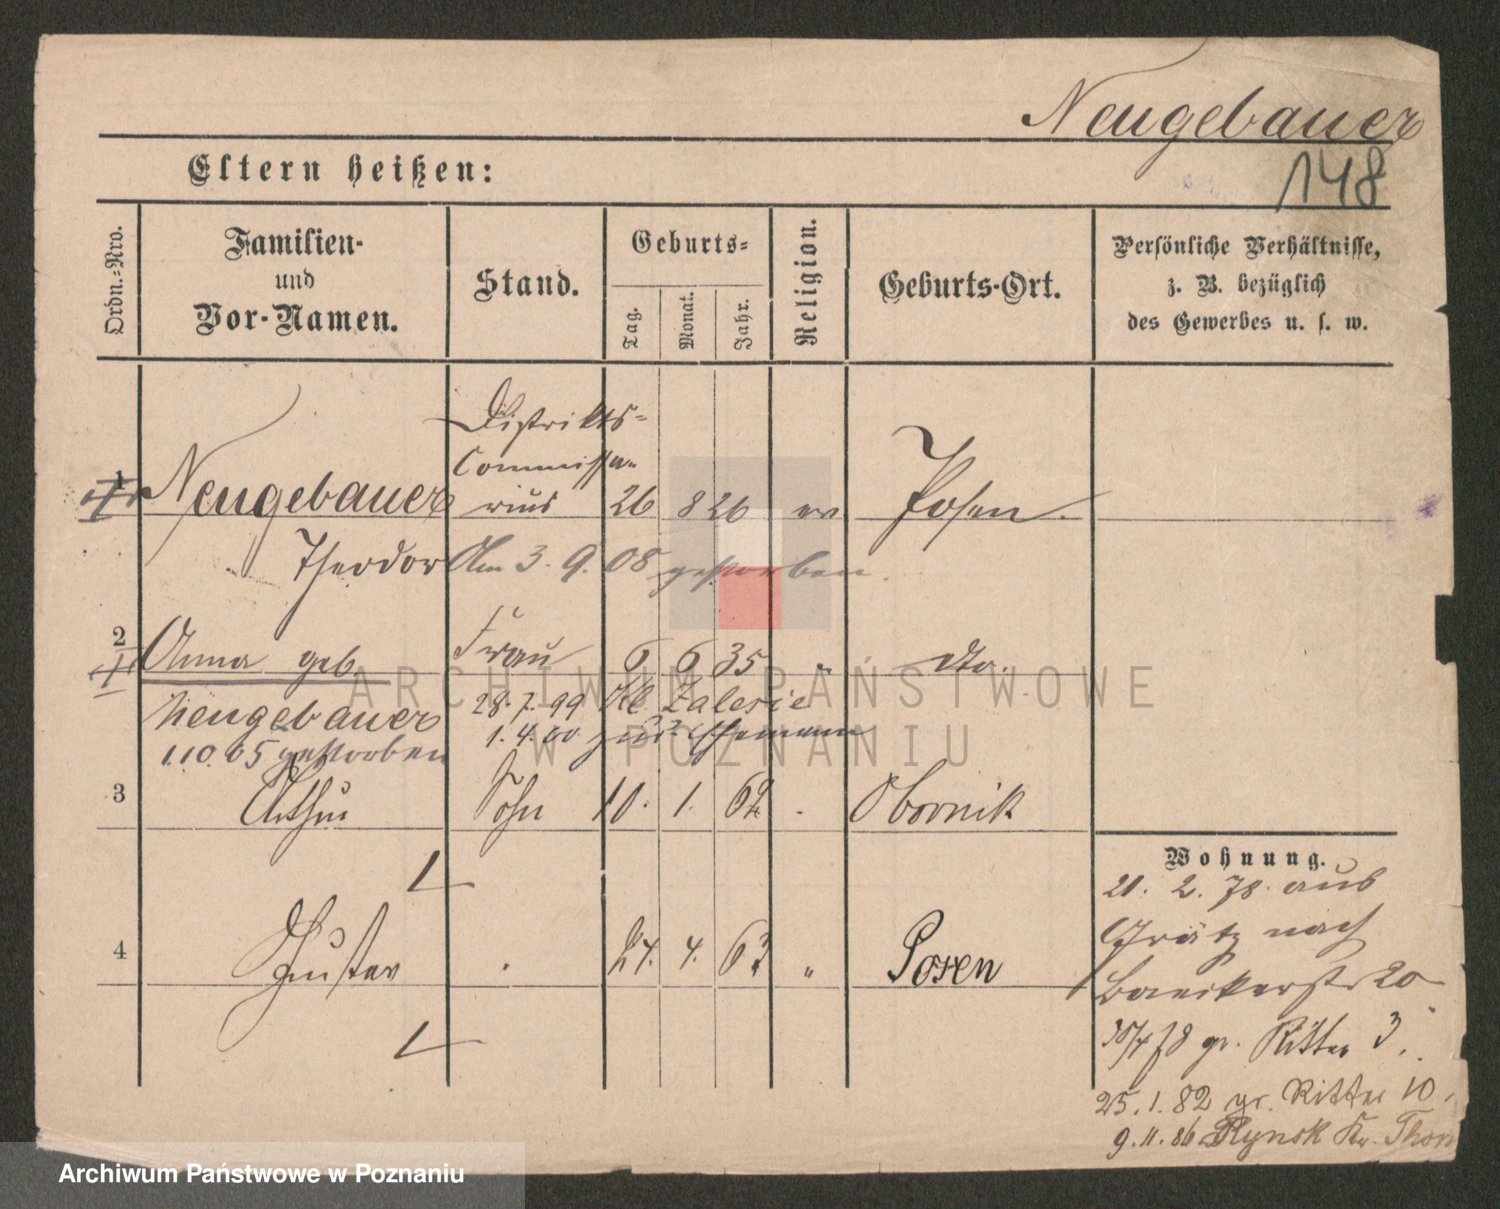 Neugebauer
148
Eltern heißen:
Ordn.-Nro.
Familien-
und
Vor-Namen.
Stand.
Geburts-
Tag.
Monat.
Jahr.
Religion.
Geburts-Ort.
Persönliche Verhältnisse,
z. B. bezüglich
des Gewerbes u. s. w.
1
Neugebauer
Theodor
Distrikts-
Commissa-
rius
26 8 26 ev Posen
Am 3. 9. 08 gestorben.
2
Anna geb.
Neugebauer
1.10.05 gestorben
Frau 6 6 35 " dto.
28.7.99 Kl. Zalesie
1.4.00 zur Ehemann
3
Arthur Sohn 10. 1. 62 Obornik
4
Gustav 24. 4. 63 " Posen
Wohnung.
21. 2. 78. aus
Grätz nach
Baeckerstr 20
30/4 78 gr. Ritter 3.
25.1.82 gr. Ritter 10.
9.11.86 Rynsk Kr. Thorn
ARCHIWUM PAŃSTWOWE
W POZNANIU
Archiwum Państwowe w Poznaniu